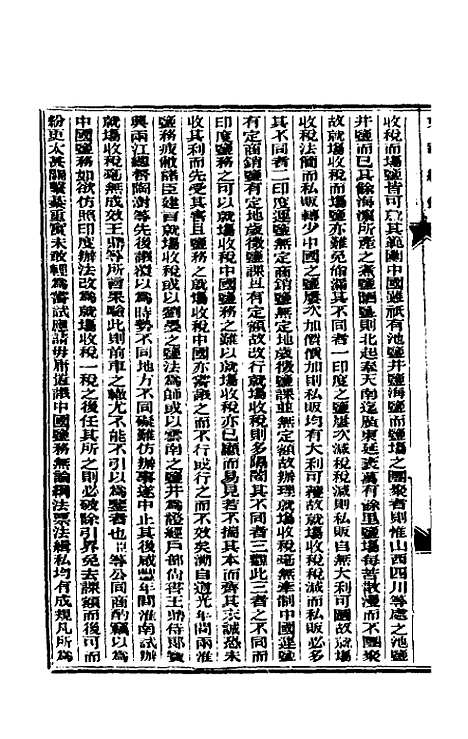 收稅而場鹽皆可就其範圍中國雖祇有池鹽井鹽海鹽而鹽之團聚者則惟山西四川等處之池鹽
井鹽而已其餘海濱所產之煮鹽曬鹽則北起奉天南迄廣東延袤萬有餘里鹽場每苦散漫而不團聚
故就場收稅而場鹽亦難免偷漏其不同者一印度之鹽屢次減稅稅減則私販自無大利可圖故就場
收稅法簡而私販轉少中國之鹽屢次加價價加則私販均有大利可獲故就場收稅法而私販必多
其不同者二印度運鹽無定商銷鹽無定地歲徵鹽課並無定額故辦理就場收稅毫無牽制中國運鹽
有定商銷鹽有定地歲徵鹽課且有定額故改行就場收稅則多隔閡其不同者三觀此三者之不同而
印度鹽務之可以就場收稅中國鹽務之難以就場收稅亦已顯而易見若不揣其本而齊其末誠恐未
收其利而先受其害且鹽務之就場收稅中國亦嘗議之而不行或行之而不效矣溯自道光年間兩淮
鹽務疲敝諸臣建言就場收稅或以劉晏之鹽法為師或以雲南之鹽井為證經戶部尚書王鼎侍郎寶
興兩江總督陶澍等先後議復以為時勢不同地方不同礙難仿辦事遂中止其後咸豐年間淮南試辦
就場收稅毫無成效王鼎等所言果驗此則前車之轍尤不能不引以為鑒者也臣等公同商酌竊以為
中國鹽務如欲仿照印度辦法改為就場收稅一稅之後任其所之則必破除引界免去課額而後可而
紛更太甚關繫綦重實未敢輕為嘗試應請毋庸置議中國鹽務無論綱法票法緝私均有成規凡所為